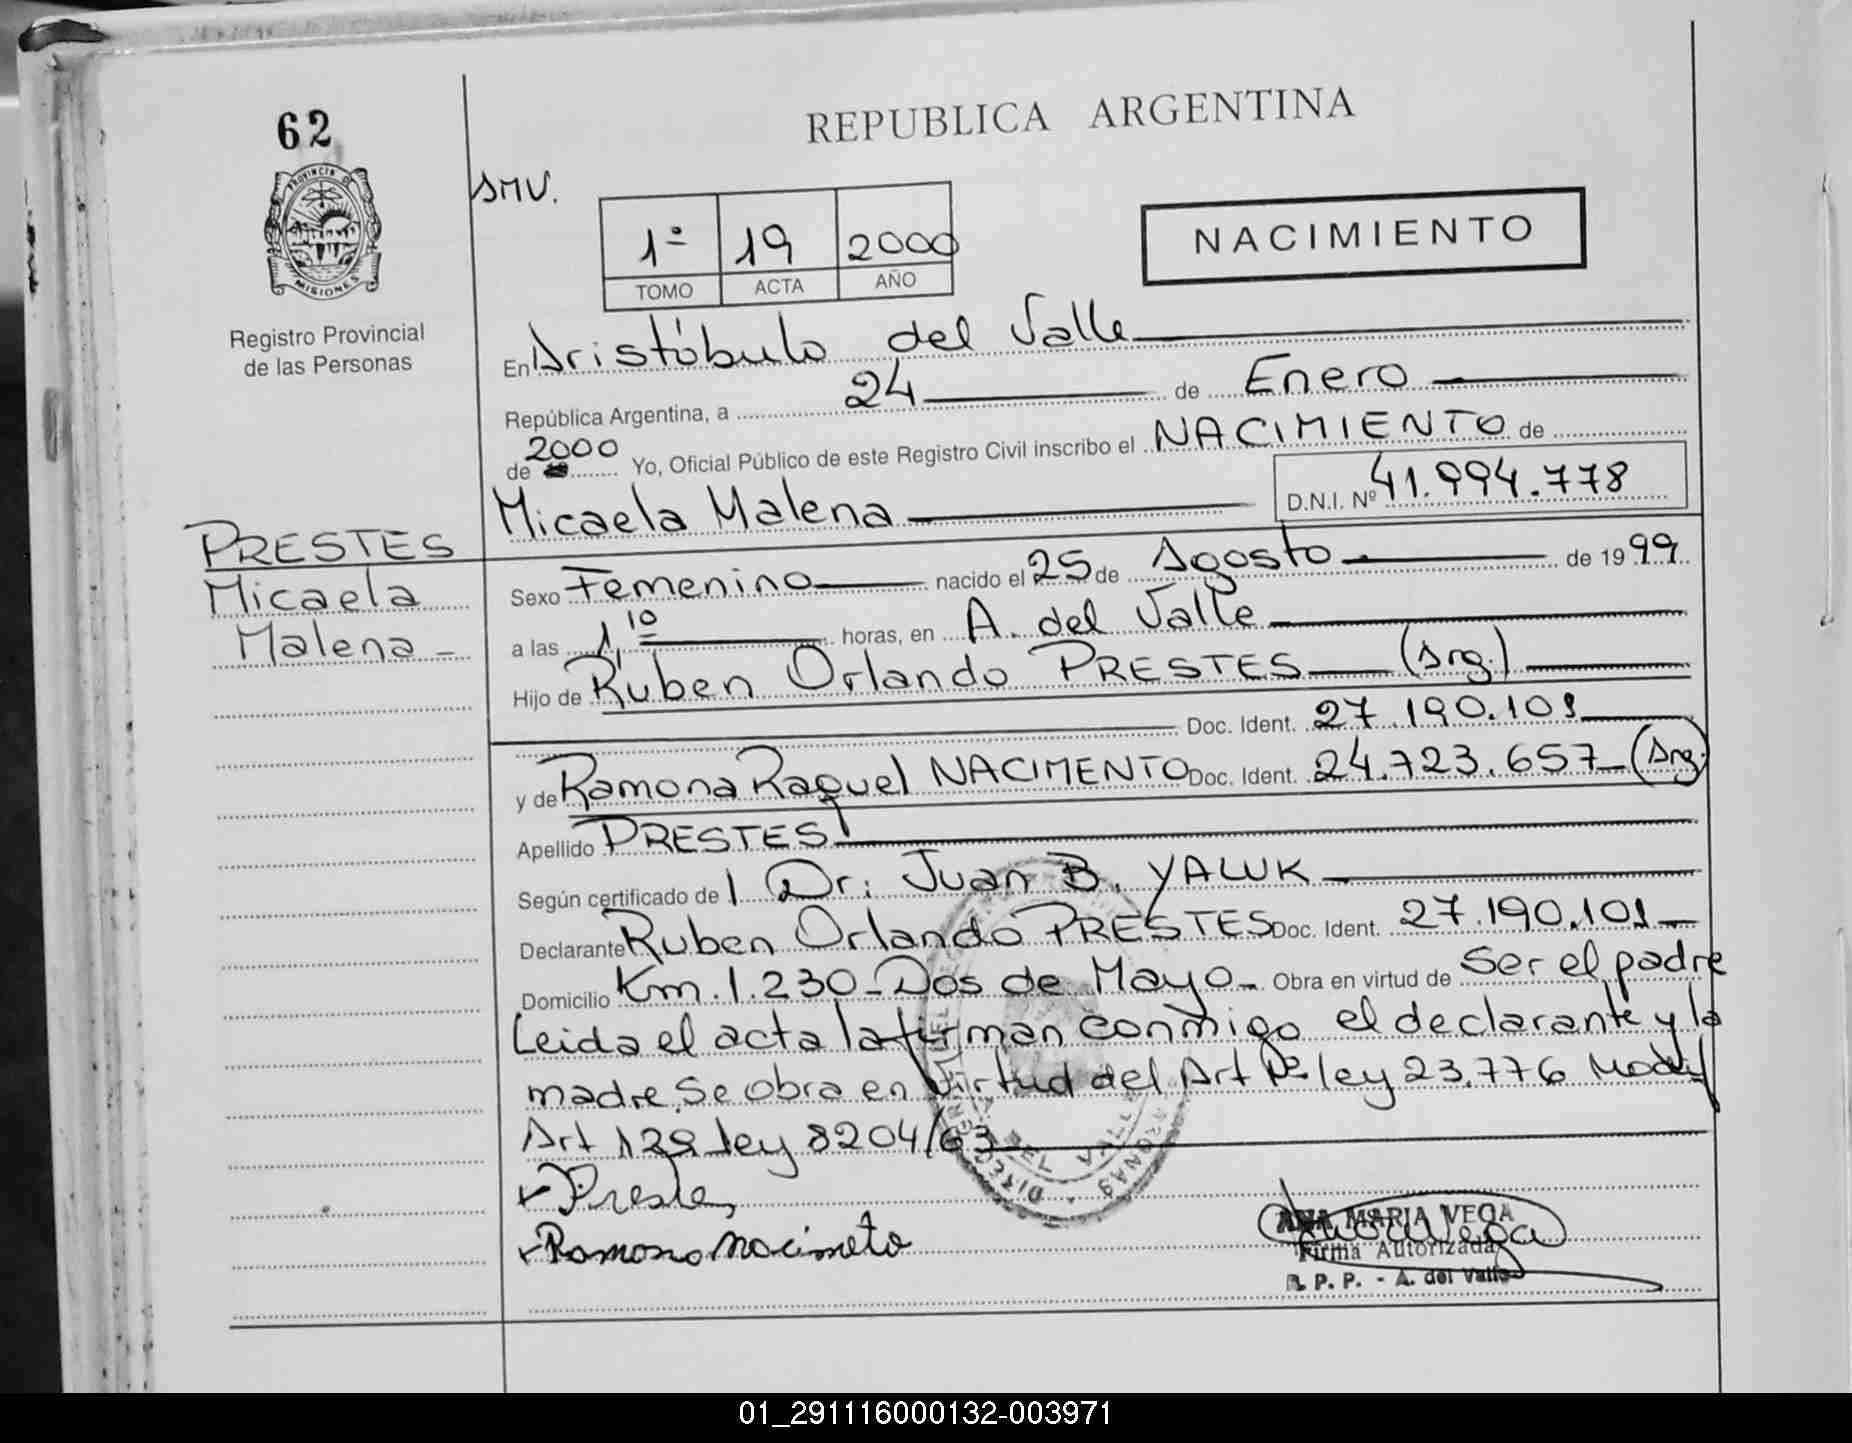 62
PROVINCIA DE
MISIONES
Registro Provincial
de las Personas
REPUBLICA ARGENTINA
AMV.
1º 19 2000
TOMO ACTA AÑO
NACIMIENTO
En Aristóbulo del Valle
República Argentina, a 24 de Enero
de 2000 Yo, Oficial Público de este Registro Civil inscribo el NACIMIENTO de
Micaela Malena D.N.I. Nº 41.994.778
PRESTES
Micaela
Malena
Sexo Femenino nacido el 25 de Agosto de 1999
a las 1,10 horas, en A. del Valle
Hijo de Ruben Orlando PRESTES (Arg.)
Doc. Ident. 27.190.101
y de Ramona Raquel NACIMENTO Doc. Ident. 24.723.657 (Arg.
Apellido PRESTES
Según certificado de l Dr: Juan B. YALUK
Declarante Ruben Orlando PRESTES Doc. Ident. 27.190.101
Domicilio Km. 1.230 - Dos de Mayo - Obra en virtud de ser el padre
Leida el acta la firman conmigo el declarante y la
madre. Se obra en virtud del Art 1º ley 23.776 Modif
Art 29 ley 8204/63
Prestes
Ramona Nacimeto
ANA MARIA VEGA
Firma Autorizada
R. P. P. - A. del Valle
01_291116000132-003971